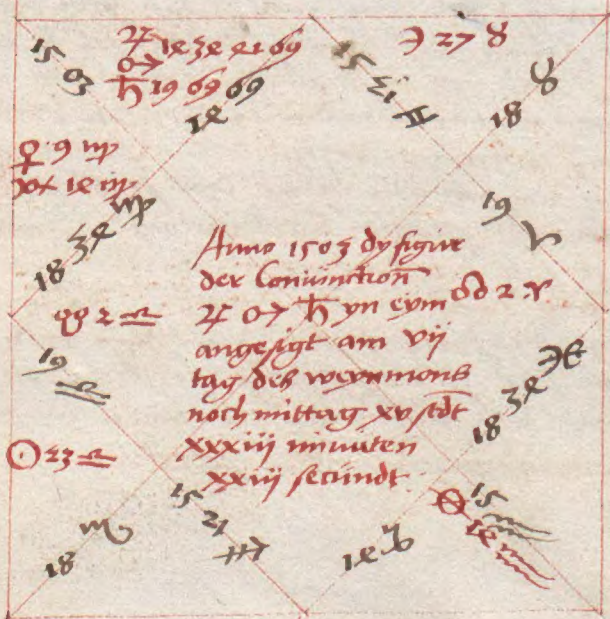 15 ♌ 03
♃ 12 32 21 ♋
♂
♄ 19 ♋ ♋
12
☽ 27 ♉
15 21 ♊
18 ♉
♀ 9 ♍
12 ♍
18 32 ♍
19 ♈
Anno 1503 dy figur
der Coniunction
♃ ♂ ♄ yn eym
angesigt am vij
tag des weynmons
noch mittag xv stdt
xxxiij minuten
xxiij secundt
☊ 2 ♎
☋ 2 ♈
19 ♎
18 32 ♓
☉ 23 ♎
15 21 ♐
18 ♏
12 ♑
15 ♒
⊗ 12 ♒